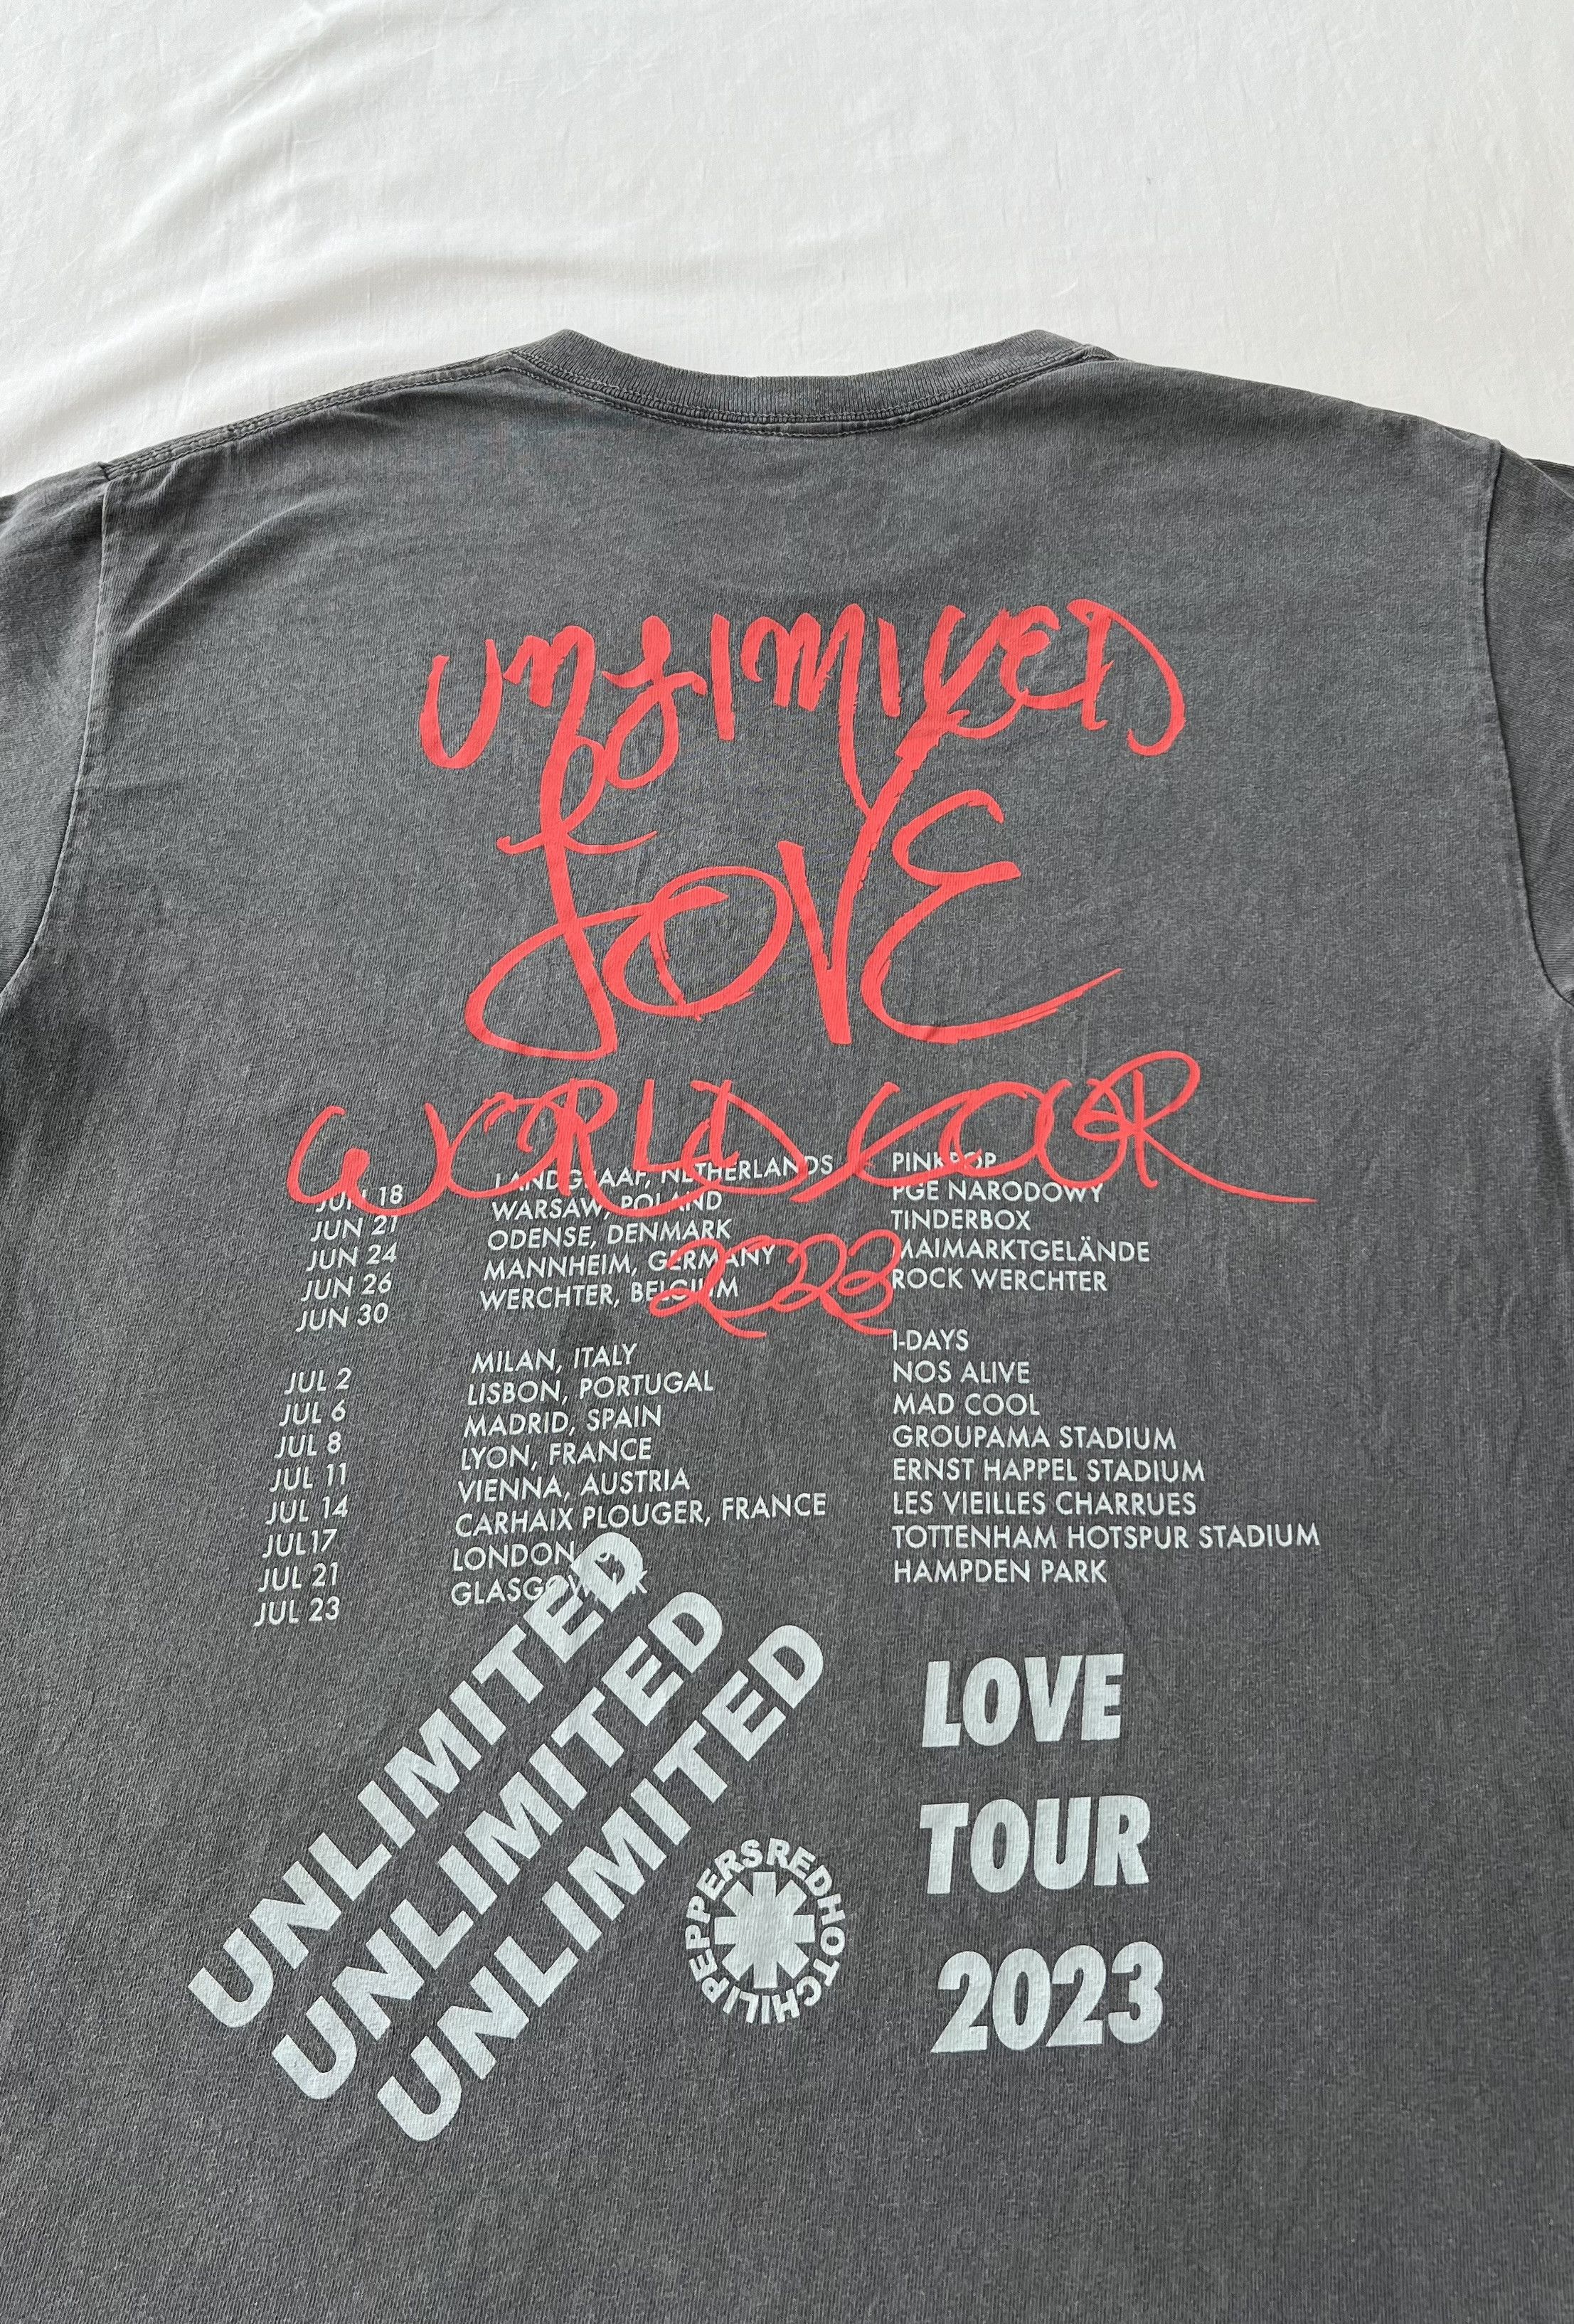 UNLIMITED
LOVE
WORLD TOUR
2023
JUN 18 LANDGRAAF, NETHERLANDS PINKPOP
JUN 21 WARSAW, POLAND PGE NARODOWY
JUN 24 ODENSE, DENMARK TINDERBOX
JUN 26 MANNHEIM, GERMANY MAIMARKTGELÄNDE
JUN 30 WERCHTER, BELGIUM ROCK WERCHTER
JUL 2 MILAN, ITALY I-DAYS
JUL 6 LISBON, PORTUGAL NOS ALIVE
JUL 8 MADRID, SPAIN MAD COOL
JUL 11 LYON, FRANCE GROUPAMA STADIUM
JUL 14 VIENNA, AUSTRIA ERNST HAPPEL STADIUM
JUL17 CARHAIX PLOUGER, FRANCE LES VIEILLES CHARRUES
JUL 21 LONDON, TOTTENHAM HOTSPUR STADIUM
JUL 23 GLASGOW HAMPDEN PARK
UNLIMITED
UNLIMITED
UNLIMITED
REDHOTCHILIPEPPERS
LOVE
TOUR
2023